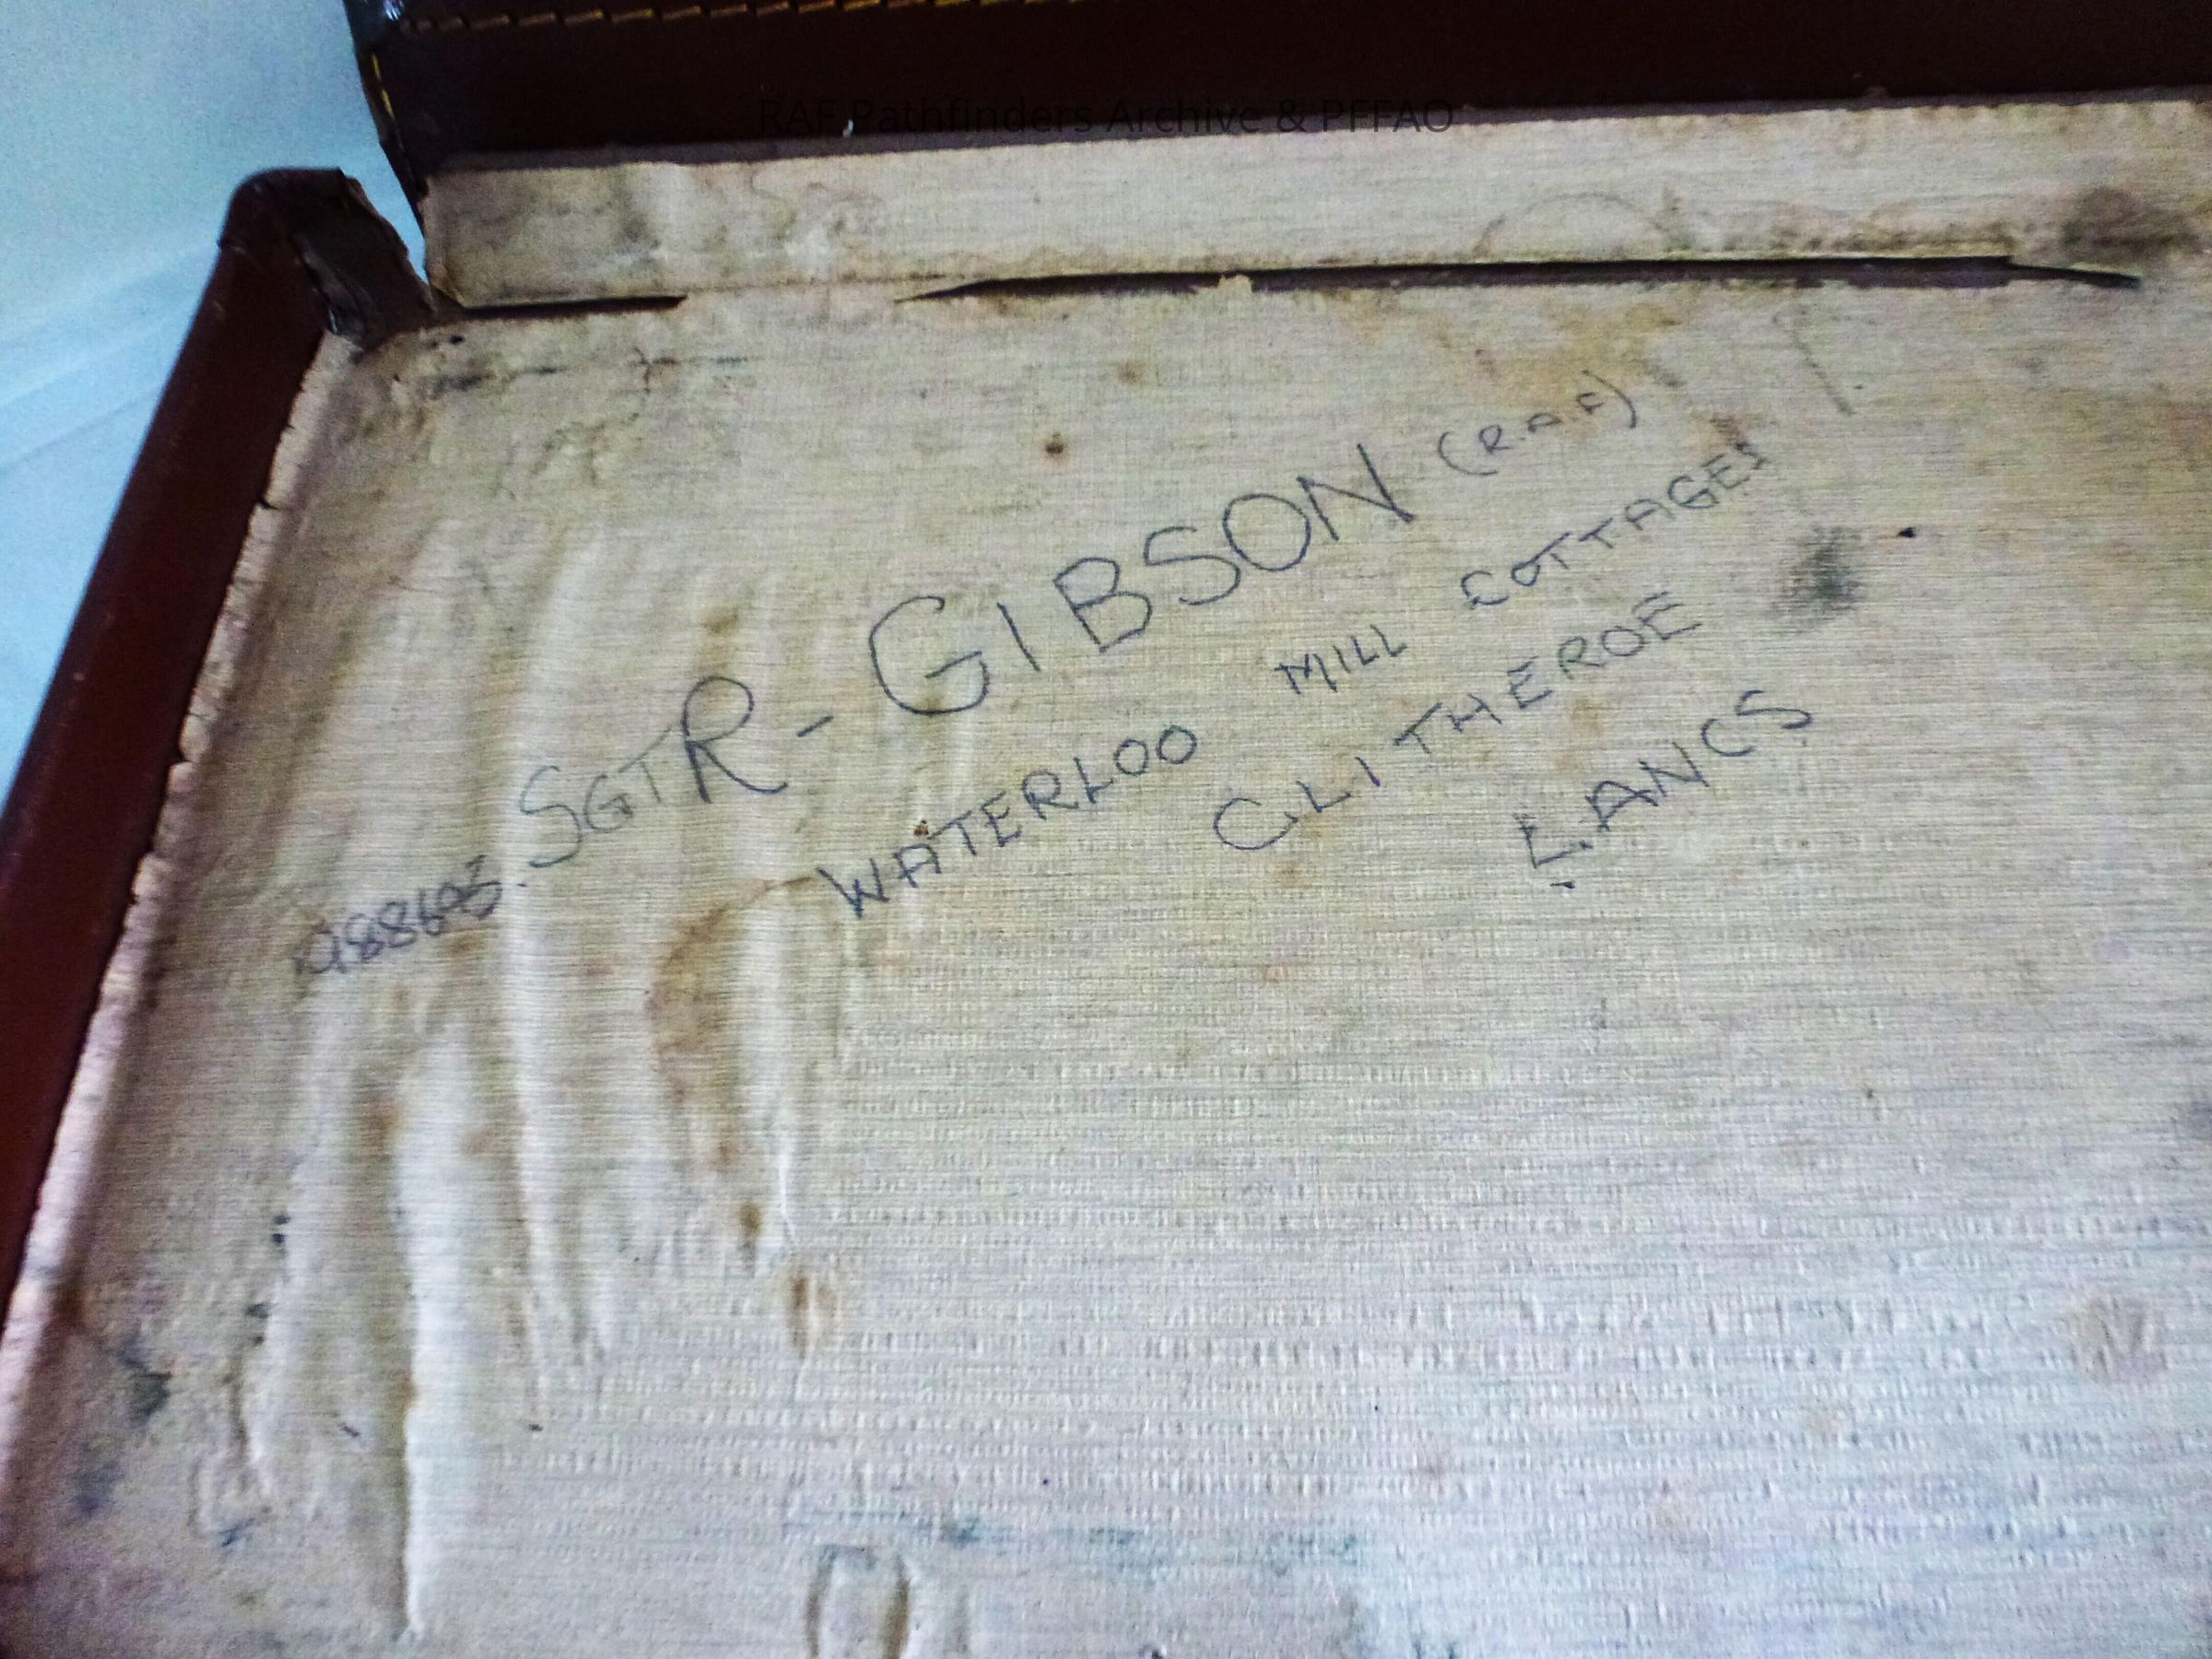 RAF Pathfinders Archive & PFFAO
SGT R - GIBSON (R.A.F)
WATERLOO MILL COTTAGES
CLITHEROE
LANCS